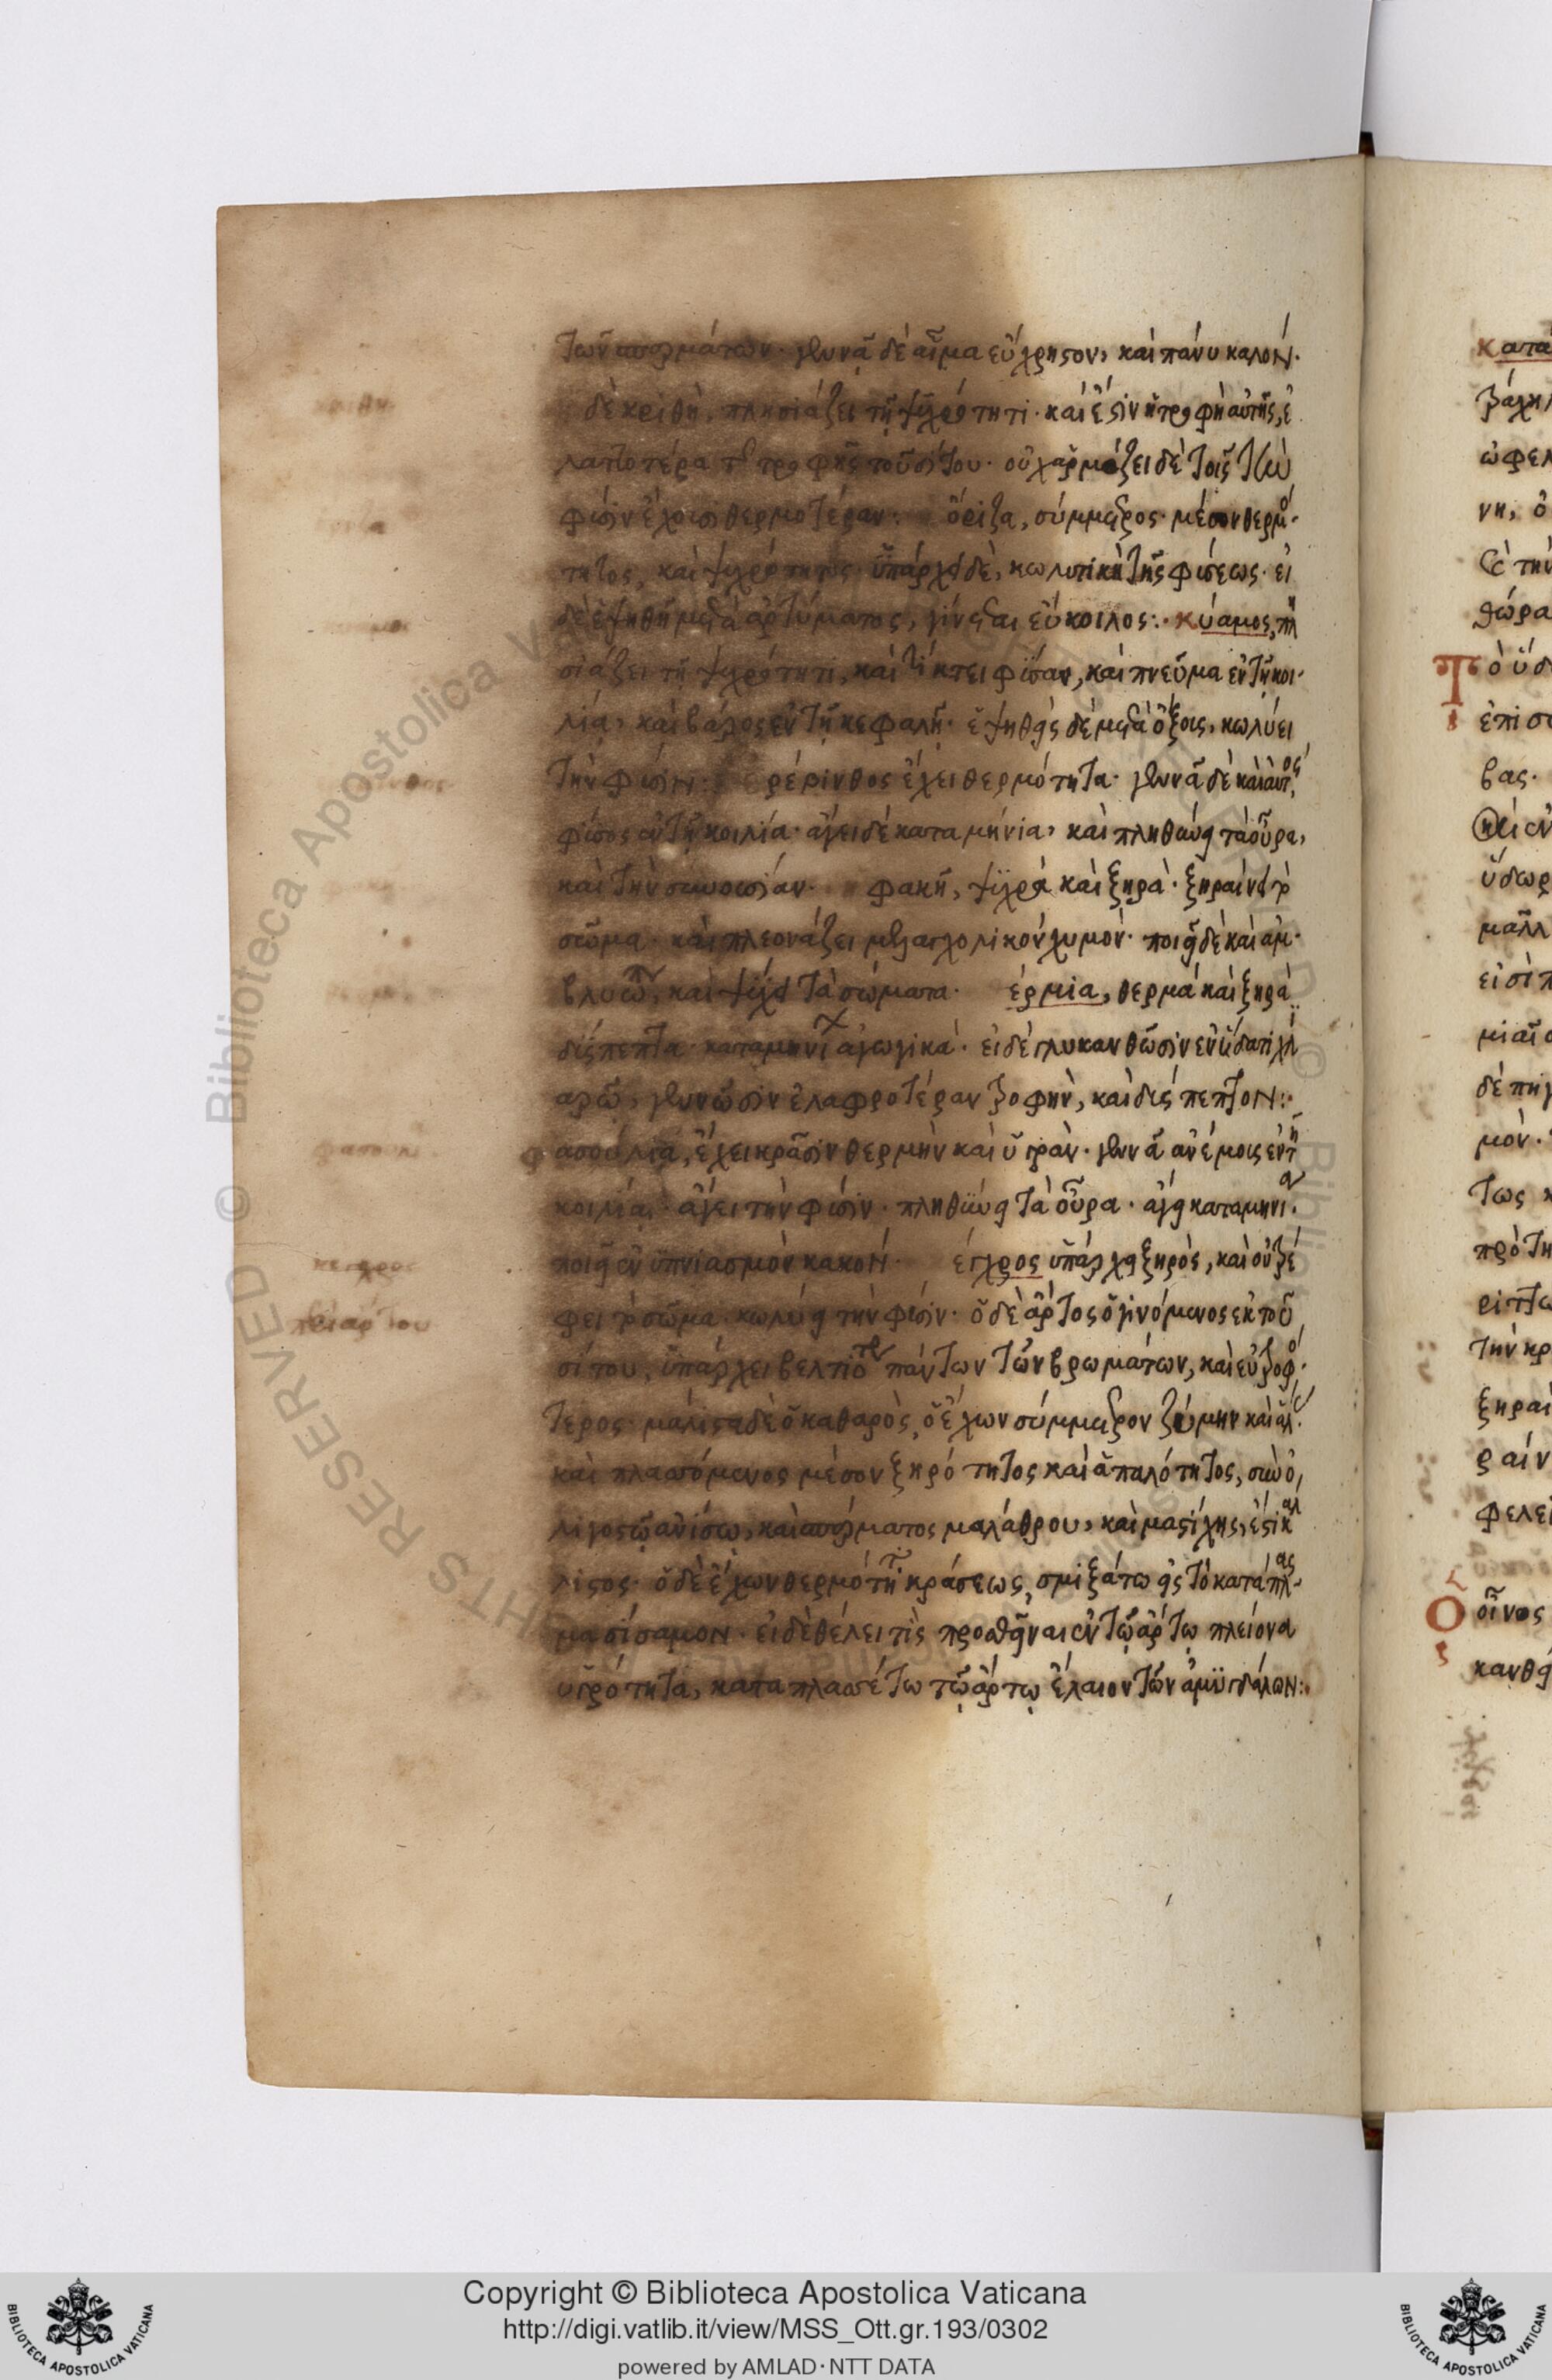 τῶν σπερμάτων· γεννᾶ δὲ αἷμα εὔχρηστον, καὶ πάνυ καλόν·
δὲ κριθὴ, πλησιάζει τῇ ψυχρότητι· καὶ ἔστιν ἡ τροφὴ αὐτῆς, ἐ
λαττοτέρα τῆς τροφῆς τοῦ σίτου· οὐχ ἁρμόζει δὲ τοῖς τὴν
φύσιν ἔχουσι θερμοτέραν: ὄριζα, σύμμετρος· μέσον θερμό
τητος, καὶ ψυχρότητος· ὑπάρχει δὲ, κωλυτικὴ τῆς φύσεως· εἰ
δὲ ἐψηθῇ μετὰ ἀρτύματος, γίνεται εὔκοιλος:· κύαμος, πλη
σιάζει τῇ ψυχρότητι, καὶ τίκτει φῦσαν, καὶ πνεῦμα ἐν τῇ κοι
λία, καὶ βάρος ἐν τῇ κεφαλῇ· ἐψηθεὶς δὲ μετὰ ὄξους, κωλύει
τὴν φύσιν: ρέβινθος ἔχει θερμότητα· γεννᾶ δὲ καὶ αὐτὸς
φύσας ἐν τῇ κοιλία· ἄγει δὲ καταμήνια, καὶ πληθύνει τὰ οὖρα,
καὶ τὴν συνουσίαν· φακῆ, ψυχρὰ καὶ ξηρὰ· ξηραίνει τὸ
σῶμα· καὶ πλεονάζει μελαγχολικὸν χυμόν· ποιεῖ δὲ καὶ ἀμ
βλυωπίαν, καὶ ψύχει τὰ σώματα· έρμια, θερμὰ καὶ ξηρὰ
δύσπεπτα· καταμηνίων ἀγωγικά· εἰ δὲ γλυκανθῶσιν ἐν ὕδατι χλι
αρῷ, γεννῶσιν ἐλαφροτέραν τροφὴν, καὶ δύσπεπτον:·
φασούλια, ἔχει κρᾶσιν θερμὴν καὶ ὑγράν· γεννᾶ ἀνέμους ἐν τῇ
κοιλία· ἄγει τὴν φύσιν· πληθύνει τὰ οὖρα· ἄγει καταμήνια·
ποιεῖ ἐνυπνιασμὸν κακόν· έγχρος ὑπάρχει ξηρὸς, καὶ οὐ τρέ
φει τὸ σῶμα· κωλύει τὴν φύσιν· ὁ δὲ ἄρτος ὁ γινόμενος ἐκ τοῦ
σίτου, ὑπάρχει βελτιότερος πάντων τῶν βρωμάτων, καὶ εὐτροφό
τερος· μάλιστα δὲ ὁ καθαρὸς, ὁ ἔχων σύμμετρον ζύμην καὶ ἅλας
καὶ πλαττόμενος μέσον ξηρότητος καὶ ἁπαλότητος, σὺν ὀ
λίγος ᾧ ἀνίσῳ, καὶ σπέρματος μαλάθρου, καὶ μαστίχης, ἐστὶ κάλ
λιστος· ὁ δὲ ἔχων θερμότητα κράσεως, σμιξάτω εἰς τὸ κατάπλασ
μα σίσαμον· εἰ δὲ θέλει τὶς προσθεῖναι ἐν τῷ ἄρτῳ πλείονα
ὑγρότητα, καταπλασσέτω τῷ ἄρτῳ ἔλαιον τῶν ἀμυγδάλων:·
κριθὴ
φασούλι
κεγχρος
περὶ ἄρτου
κατα
ὠφελ
νη, ὁ
Τὸ ὕδ
βας·
ὕδωρ
μᾶλλ
δὲ πηγ
μόν·
τως κ
πρὸ τη
τὴν κρ
ξηραὶ
φελεῖ
Ο οἶνος
κανθεὶ
Biblioteca Apostolica Vaticana
RIGHTS RESERVED ©
Copyright © Biblioteca Apostolica Vaticana
http://digi.vatlib.it/view/MSS_Ott.gr.193/0302
powered by AMLAD·NTT DATA
BIBLIOTECA APOSTOLICA VATICANA
BIBLIOTECA APOSTOLICA VATICANA